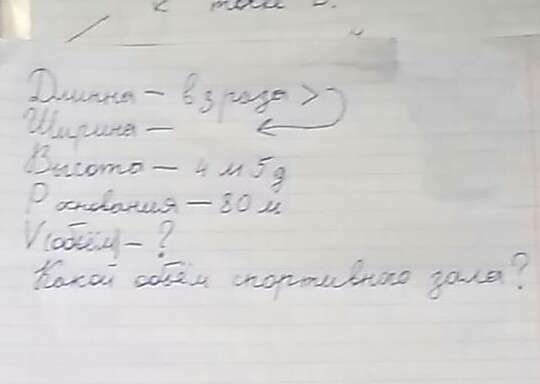 к
Длинна – в 3 раза >
Ширина –
Высота – 4 м 5 д
P основания – 80 м
V(объём) – ?
Какой объём спортивного зала?